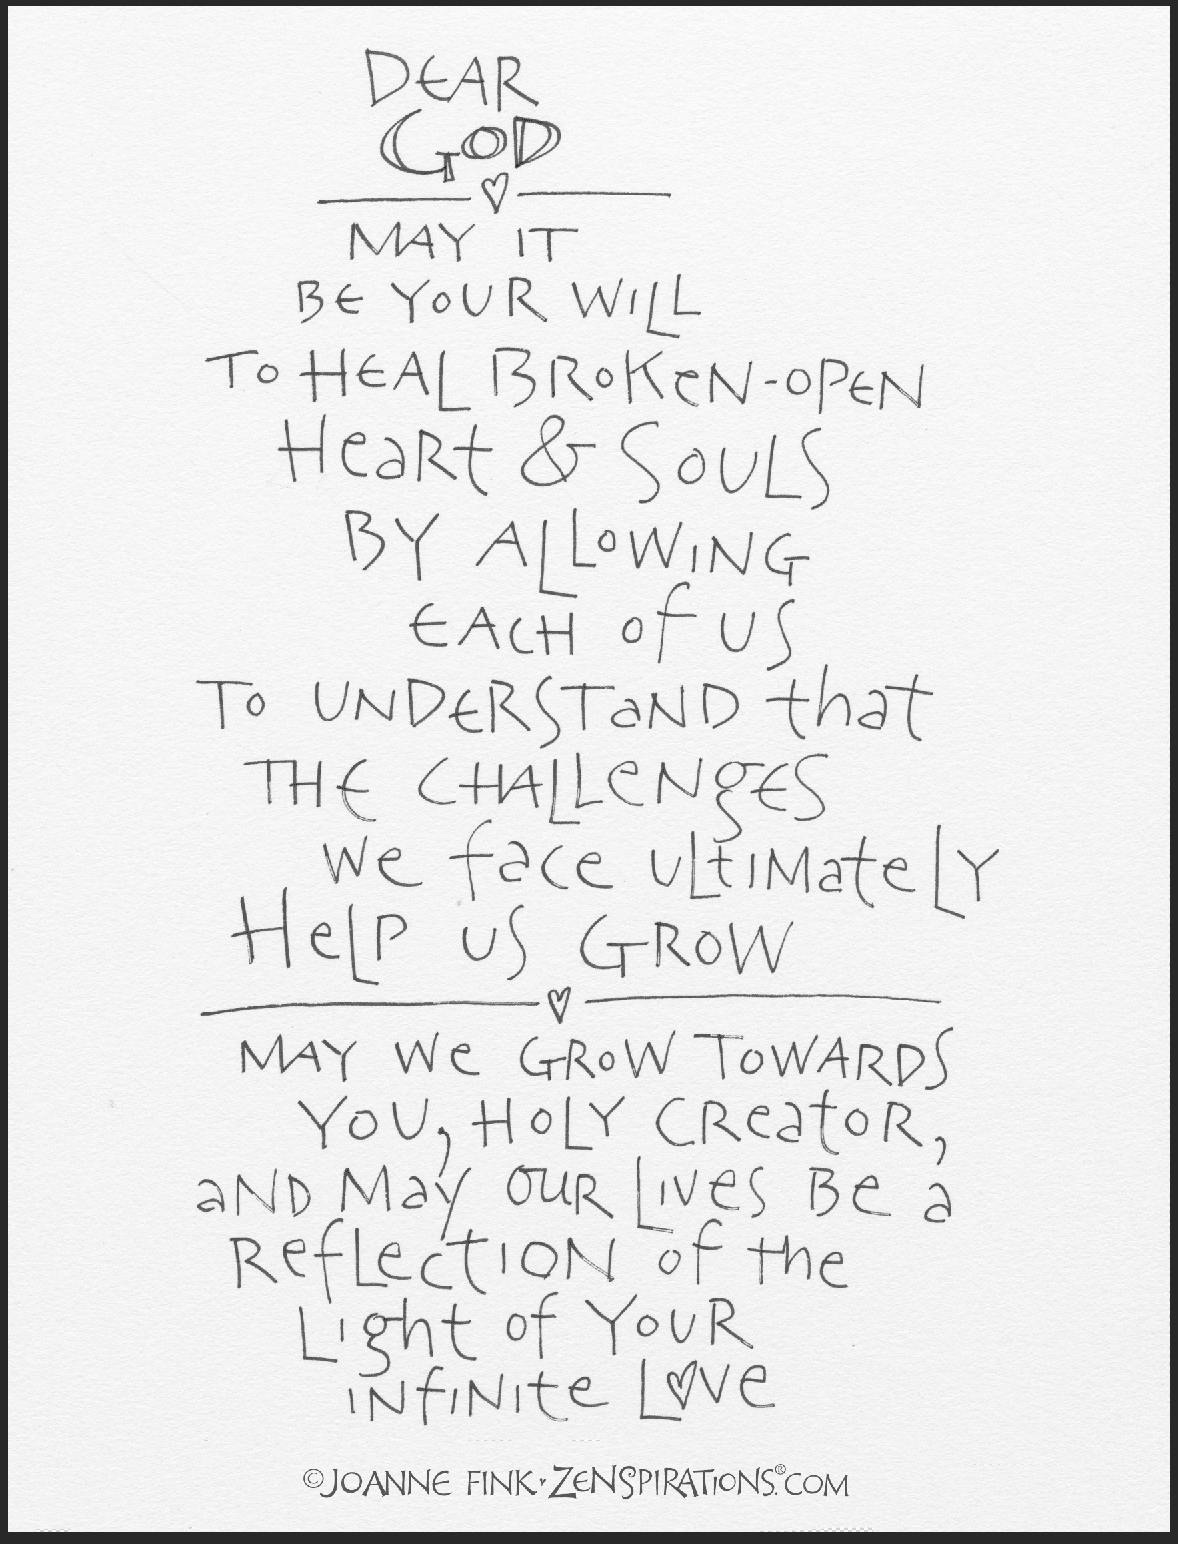 DEAR
GOD
MAY IT
BE YOUR WILL
TO HEAL BROKEN-OPEN
HeaRt & SOULS
BY ALLOWING
EACH of US
TO UNDERSTaND that
THE CHALLeNgES
We face ULtIMateLY
HeLP US GROW
MAY We GROW TOWARDS
YOU, HOLY CReatOR,
aND May OUR LIVeS Be a
RefLectION of the
Light of YOUR
INfINIte LOVe
©JOANNE FINK ZeNSPIRATIONS®.COM